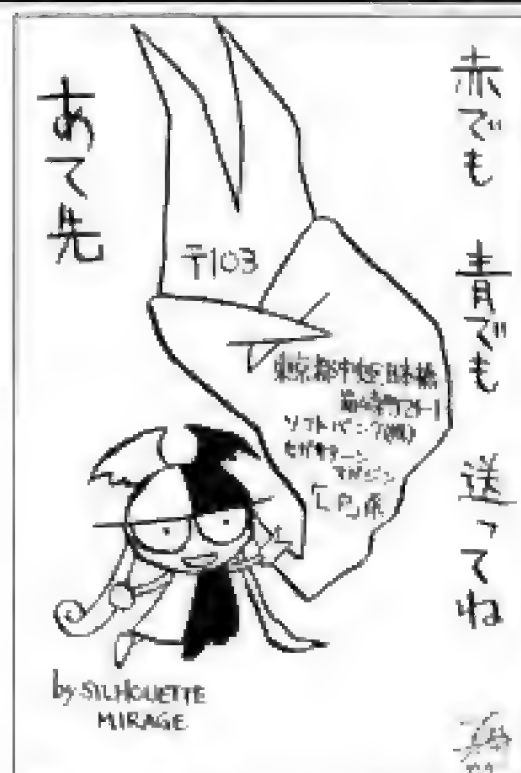 赤でも 青でも 送ってね
あて先
〒103
東京都中央区日本橋
ソフトバンク(株)
セガサターン
マガジン
by SILHOUETTE
MIRAGE